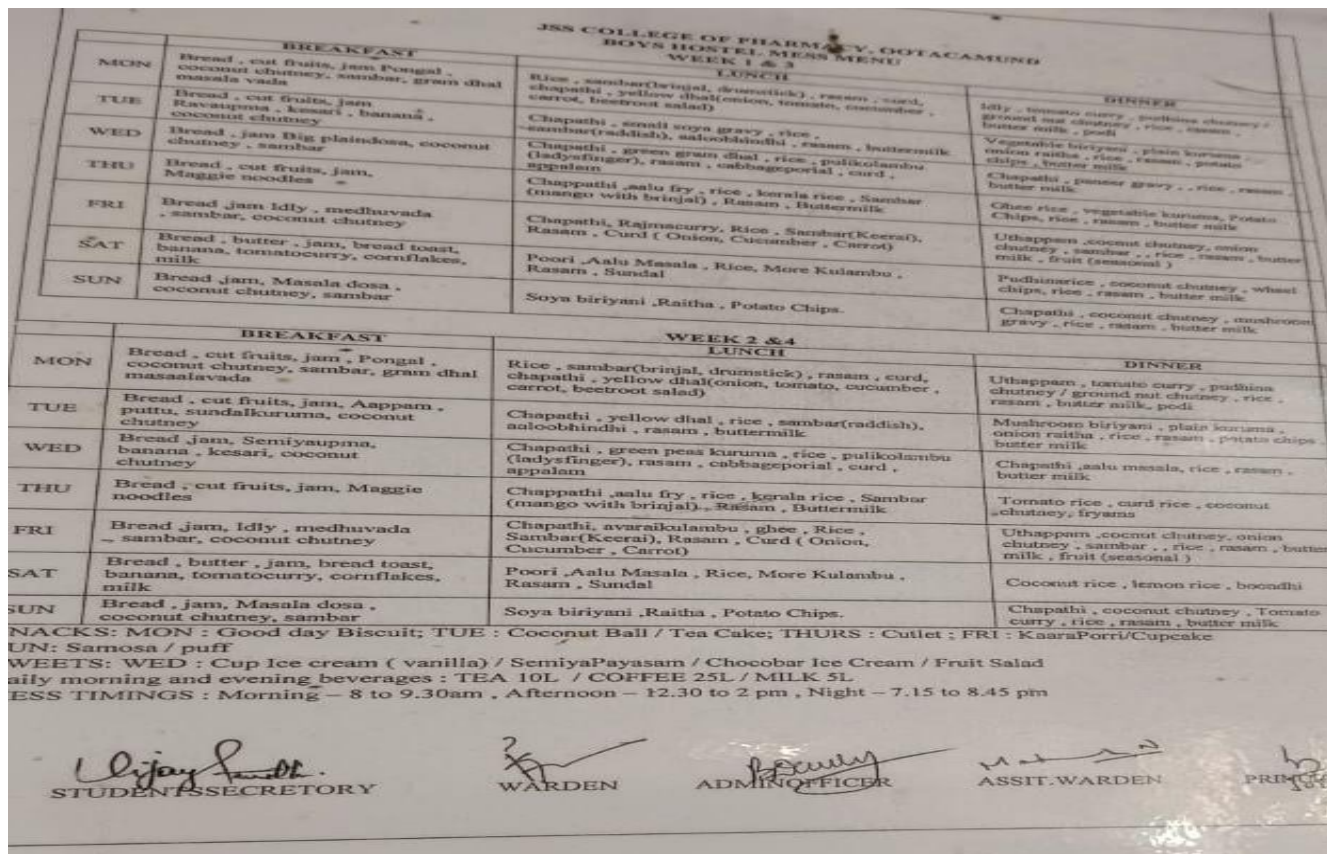 JSS COLLEGE OF PHARMACY, OOTACAMUND
BOYS HOSTEL MESS MENU
WEEK 1 & 3
BREAKFAST
LUNCH
DINNER
MON
Bread , cut fruits, jam Pongal ,
coconut chutney, sambar, gram dhal
masala vada
Rice , sambar(brinjal, drumstick) , rasam , curd,
chapathi , yellow dhal(onion, tomato, cucumber ,
carrot, beetroot salad)
Idly , tomato curry , pudhina chutney /
ground nut chutney , rice , rasam ,
butter milk , podi
TUE
Bread , cut fruits, jam
Ravaupma , kesari , banana ,
coconut chutney
Chapathi , small soya gravy , rice ,
sambar(raddish), aaloobhindhi , rasam , buttermilk
Vegetable biriyani , plain kuruma ,
onion raitha , rice , rasam , potato
chips , butter milk
WED
Bread , jam Big plaindosa, coconut
chutney , sambar
Chapathi , green gram dhal , rice , pulikolambu
(ladysfinger), rasam , cabbageporial , curd ,
appalam
Chapathi , paneer gravy , , rice , rasam ,
butter milk
THU
Bread , cut fruits, jam,
Maggie noodles
Chappathi ,aalu fry , rice , kerala rice , Sambar
(mango with brinjal) , Rasam , Buttermilk
Ghee rice , vegetable kuruma, Potato
Chips, rice , rasam , butter milk
FRI
Bread ,jam Idly , medhuvada
, sambar, coconut chutney
Chapathi, Rajmacurry, Rice , Sambar(Keerai),
Rasam , Curd ( Onion, Cucumber , Carrot)
Uthappam ,coconut chutney, onion
chutney , sambar , , rice , rasam , butter
milk , fruit (seasonal )
SAT
Bread , butter , jam, bread toast,
banana, tomatocurry, cornflakes,
milk
Poori ,Aalu Masala , Rice, More Kulambu ,
Rasam , Sundal
Pudhinarice , coconut chutney , wheel
chips, rice , rasam , butter milk
SUN
Bread ,jam, Masala dosa ,
coconut chutney, sambar
Soya biriyani ,Raitha , Potato Chips.
Chapathi , coconut chutney , mushroom
gravy , rice , rasam , butter milk
WEEK 2 &4
BREAKFAST
LUNCH
DINNER
MON
Bread , cut fruits, jam , Pongal ,
coconut chutney, sambar, gram dhal
masaalavada
Rice , sambar(brinjal, drumstick) , rasam , curd,
chapathi , yellow dhal(onion, tomato, cucumber ,
carrot, beetroot salad)
Uthappam , tomato curry , pudhina
chutney / ground nut chutney , rice ,
rasam , butter milk, podi
TUE
Bread , cut fruits, jam, Aappam ,
puttu, sundalkuruma, coconut
chutney
Chapathi , yellow dhal , rice , sambar(raddish),
aaloobhindhi , rasam , buttermilk
Mushroom biriyani , plain kuruma ,
onion raitha , rice , rasam , potato chips ,
butter milk
WED
Bread ,jam, Semiyaupma,
banana , kesari, coconut
chutney
Chapathi , green peas kuruma , rice , pulikolambu
(ladysfinger), rasam , cabbageporial , curd ,
appalam
Chapathi ,aalu masala, rice , rasam ,
butter milk
THU
Bread , cut fruits, jam, Maggie
noodles
Chappathi ,aalu fry , rice , kerala rice , Sambar
(mango with brinjal) , Rasam , Buttermilk
Tomato rice , curd rice , coconut
chutney, fryams
FRI
Bread ,jam, Idly , medhuvada
, sambar, coconut chutney
Chapathi, avaraikulambu , ghee , Rice ,
Sambar(Keerai), Rasam , Curd ( Onion,
Cucumber , Carrot)
Uthappam ,cocnut chutney, onion
chutney , sambar , , rice , rasam , butter
milk , fruit (seasonal )
SAT
Bread , butter , jam, bread toast,
banana, tomatocurry, cornflakes,
milk
Poori ,Aalu Masala , Rice, More Kulambu ,
Rasam , Sundal
Coconut rice , lemon rice , boondhi
SUN
Bread , jam, Masala dosa ,
coconut chutney, sambar
Soya biriyani ,Raitha , Potato Chips.
Chapathi , coconut chutney , Tomato
curry , rice , rasam , butter milk
NACKS: MON : Good day Biscuit; TUE : Coconut Ball / Tea Cake; THURS : Cutlet ; FRI : KaaraPorri/Cupcake
UN: Samosa / puff
WEETS: WED : Cup Ice cream ( vanilla) / SemiyaPayasam / Chocobar Ice Cream / Fruit Salad
aily morning and evening beverages : TEA 10L / COFFEE 25L / MILK 5L
ESS TIMINGS : Morning – 8 to 9.30am , Afternoon – 12.30 to 2 pm , Night – 7.15 to 8.45 pm
Vijay
STUDENTSSECRETORY
WARDEN
ADMINOFFICER
ASSIT.WARDEN